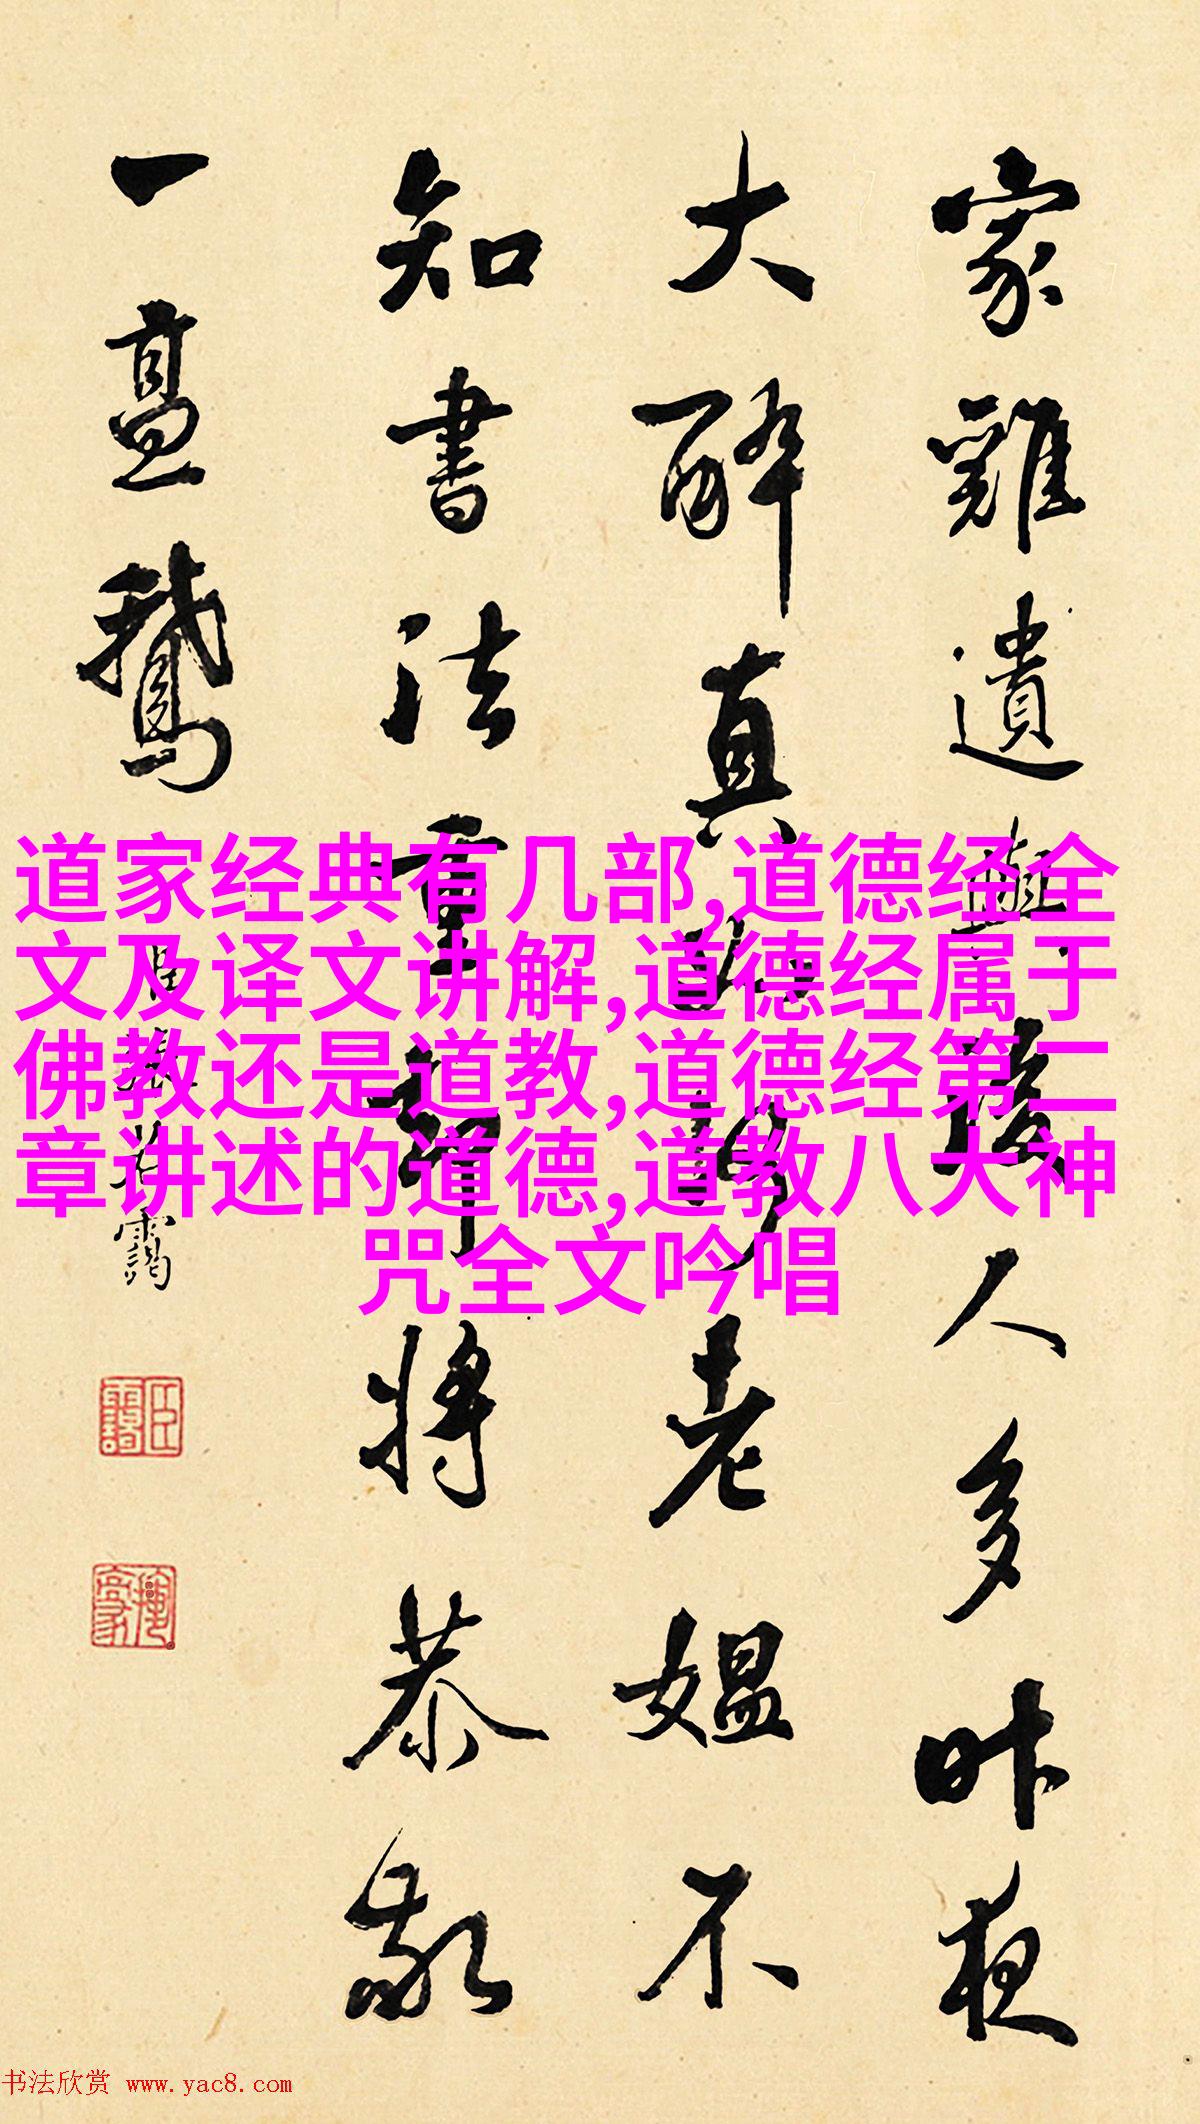 家雞遺與後人多昨夜
大醉真老媼不
知書法重卻將恭敬
一鵝
臣張若靄
道家经典有几部,道德经全
文及译文讲解,道德经属于
佛教还是道教,道德经第二
章讲述的道德,道教八大神
咒全文吟唱
书法欣赏 www.yac8.com